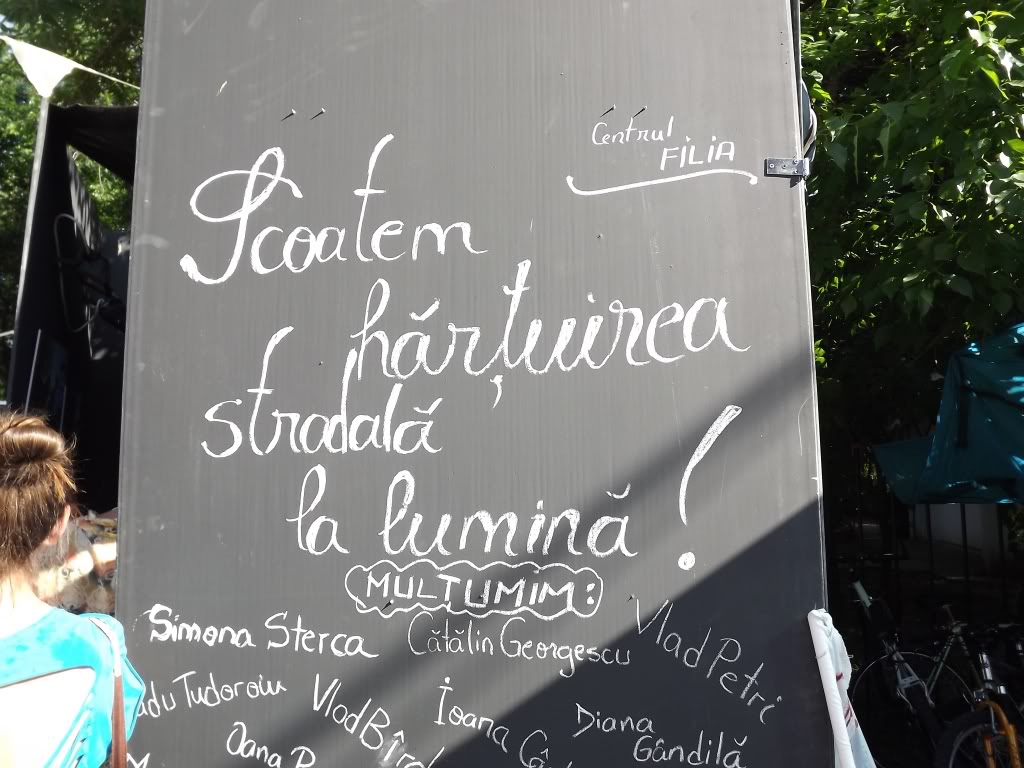 Centrul
FILIA
Scoatem
hărțuirea
stradală
la lumină!
MULȚUMIM:
Simona Sterca
Cătălin Georgescu
Vlad Petri
Tudoroiu
Vlad
Ioana
Diana
Gândilă
Oana